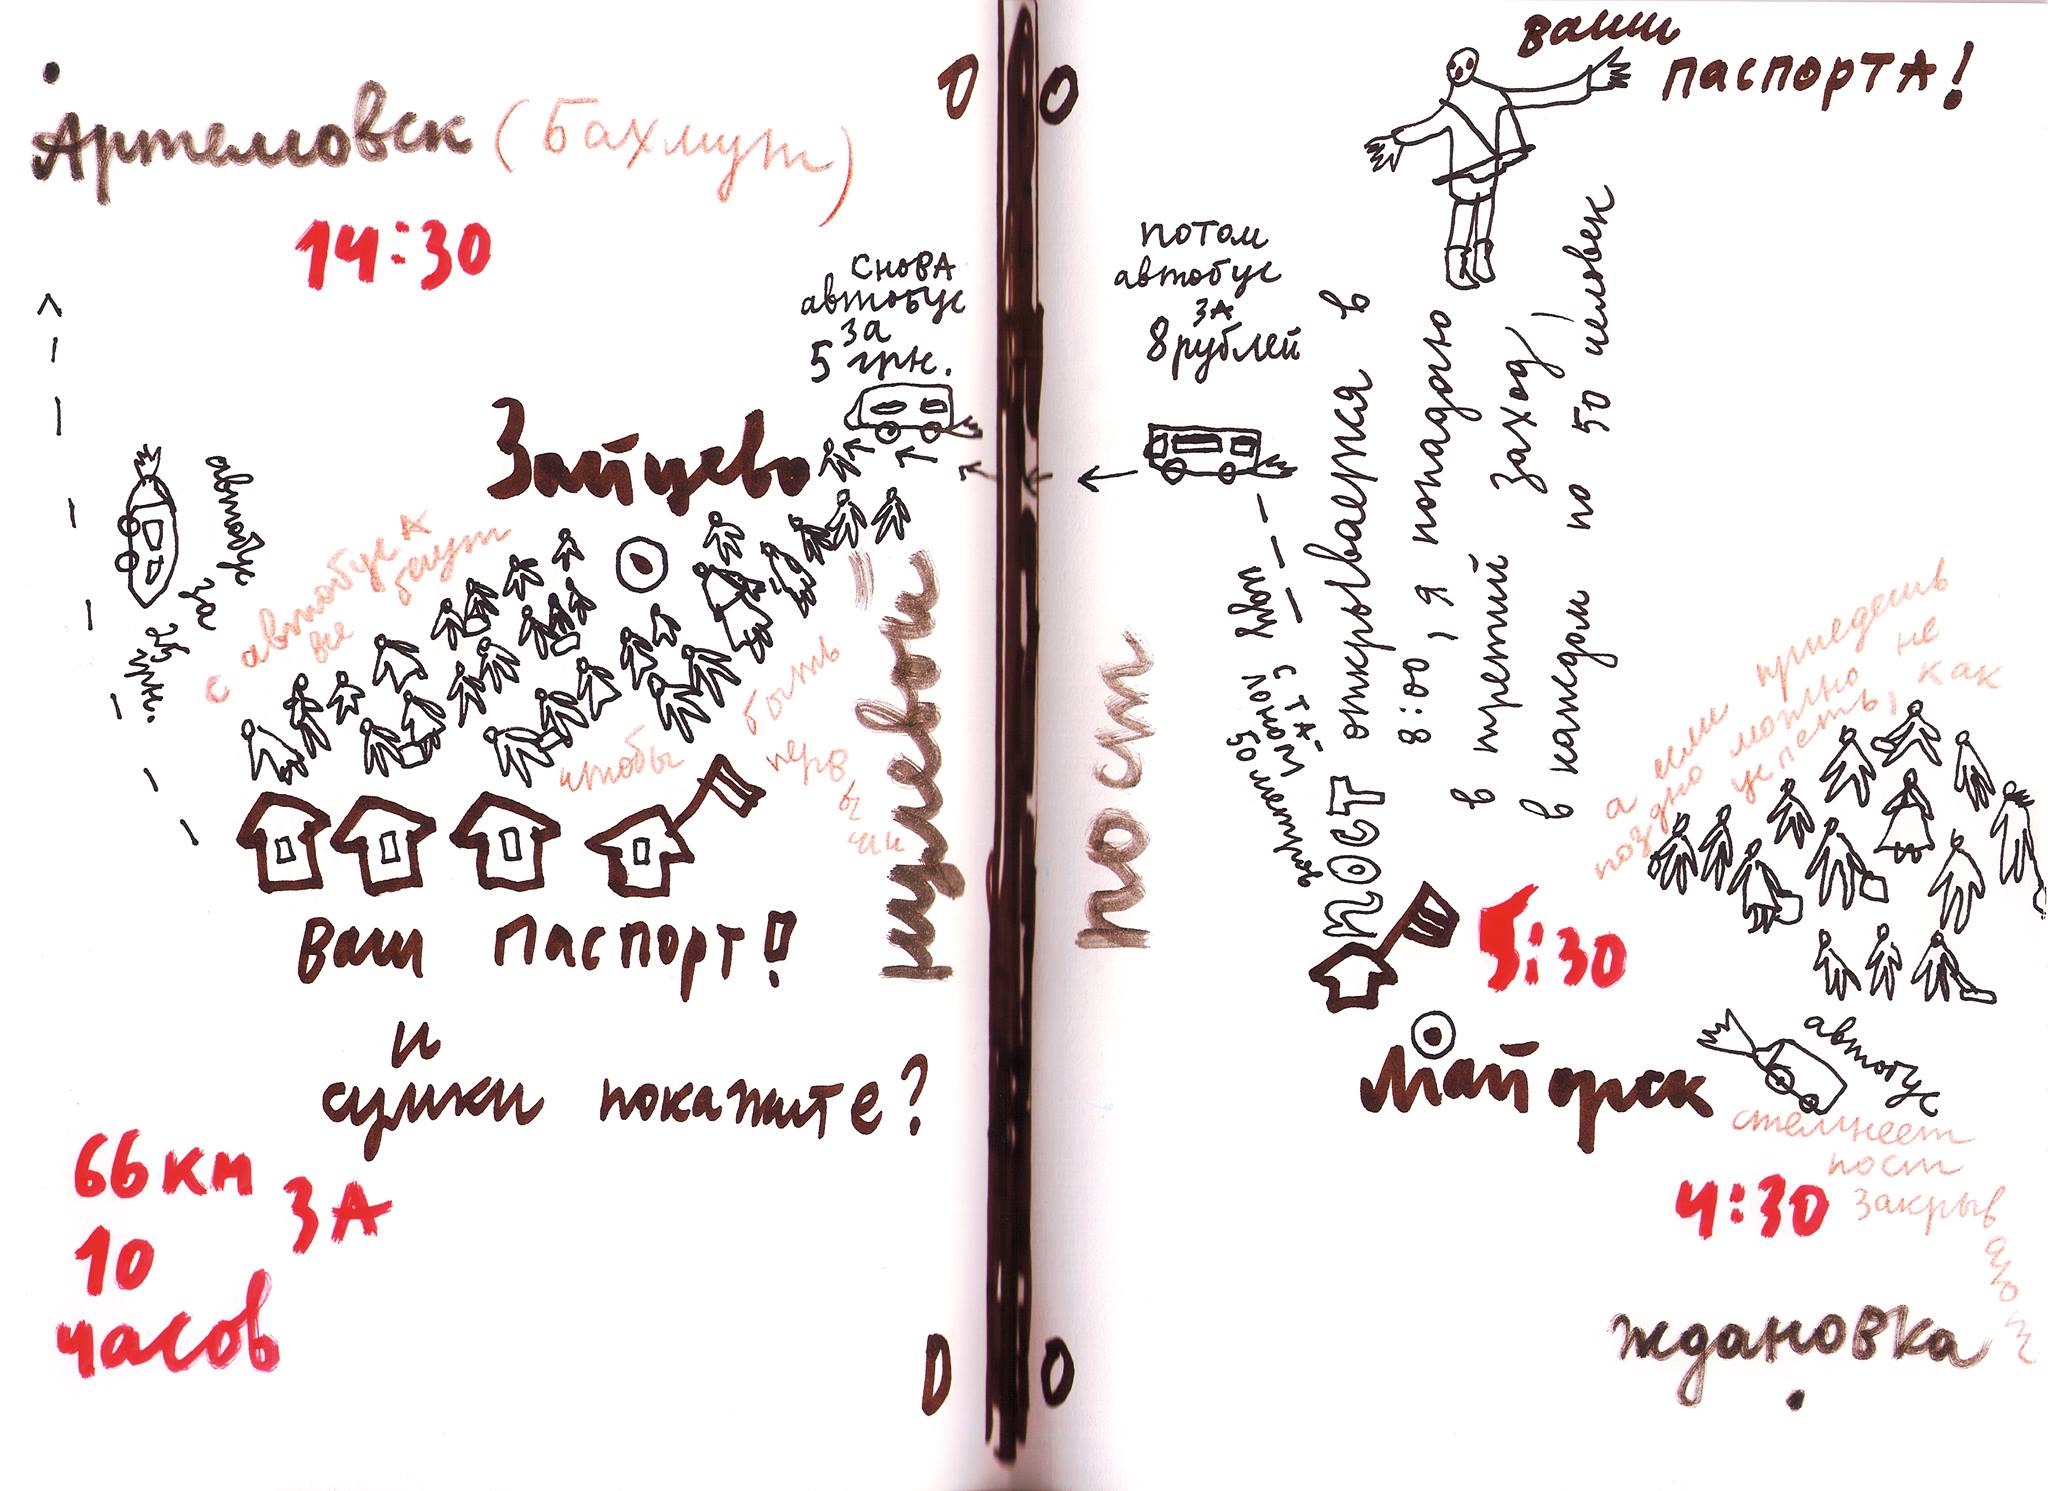 Артемовск (Бахмут)
14:30
снова
автобус
за
5 грн.
Зайцево
автобус
за
грн.
с автобуса
все бегут
чтобы
быть
первыми
нулевой
Ваш паспорт!
и
сумки покажите?
66 км
за
10
часов
0
0
0
0
ваши
паспорта!
потом
автобус
за
8 рублей
пост
открывается в
8:00, я попадаю
в третий заход,
в каждом по 50 человек
иду пол
50 метров
пост
5:30
а если приедешь
поздно можно не
успеть, как
Майорск
автобус
стемнеет
пост
закрывают
4:30
Ждановка